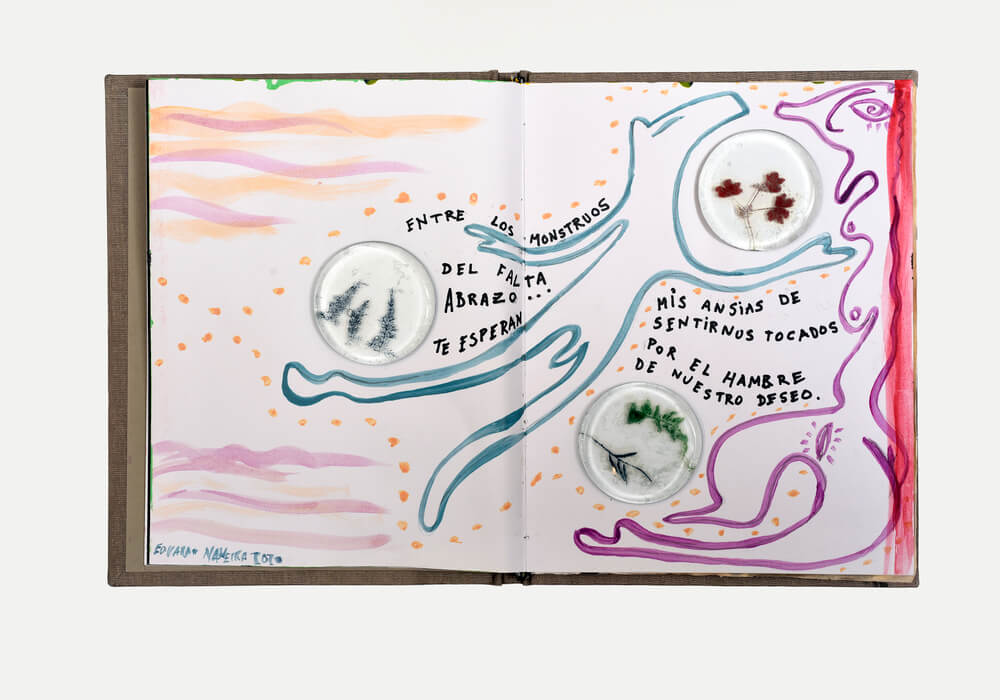 ENTRE LOS MONSTRUOS
DEL FALTA
ABRAZO...
TE ESPERAN
MIS ANSIAS DE
SENTIRNUS TOCADOS
POR EL HAMBRE
DE NUESTRO DESEO.
EDUARDO NAVEIRA